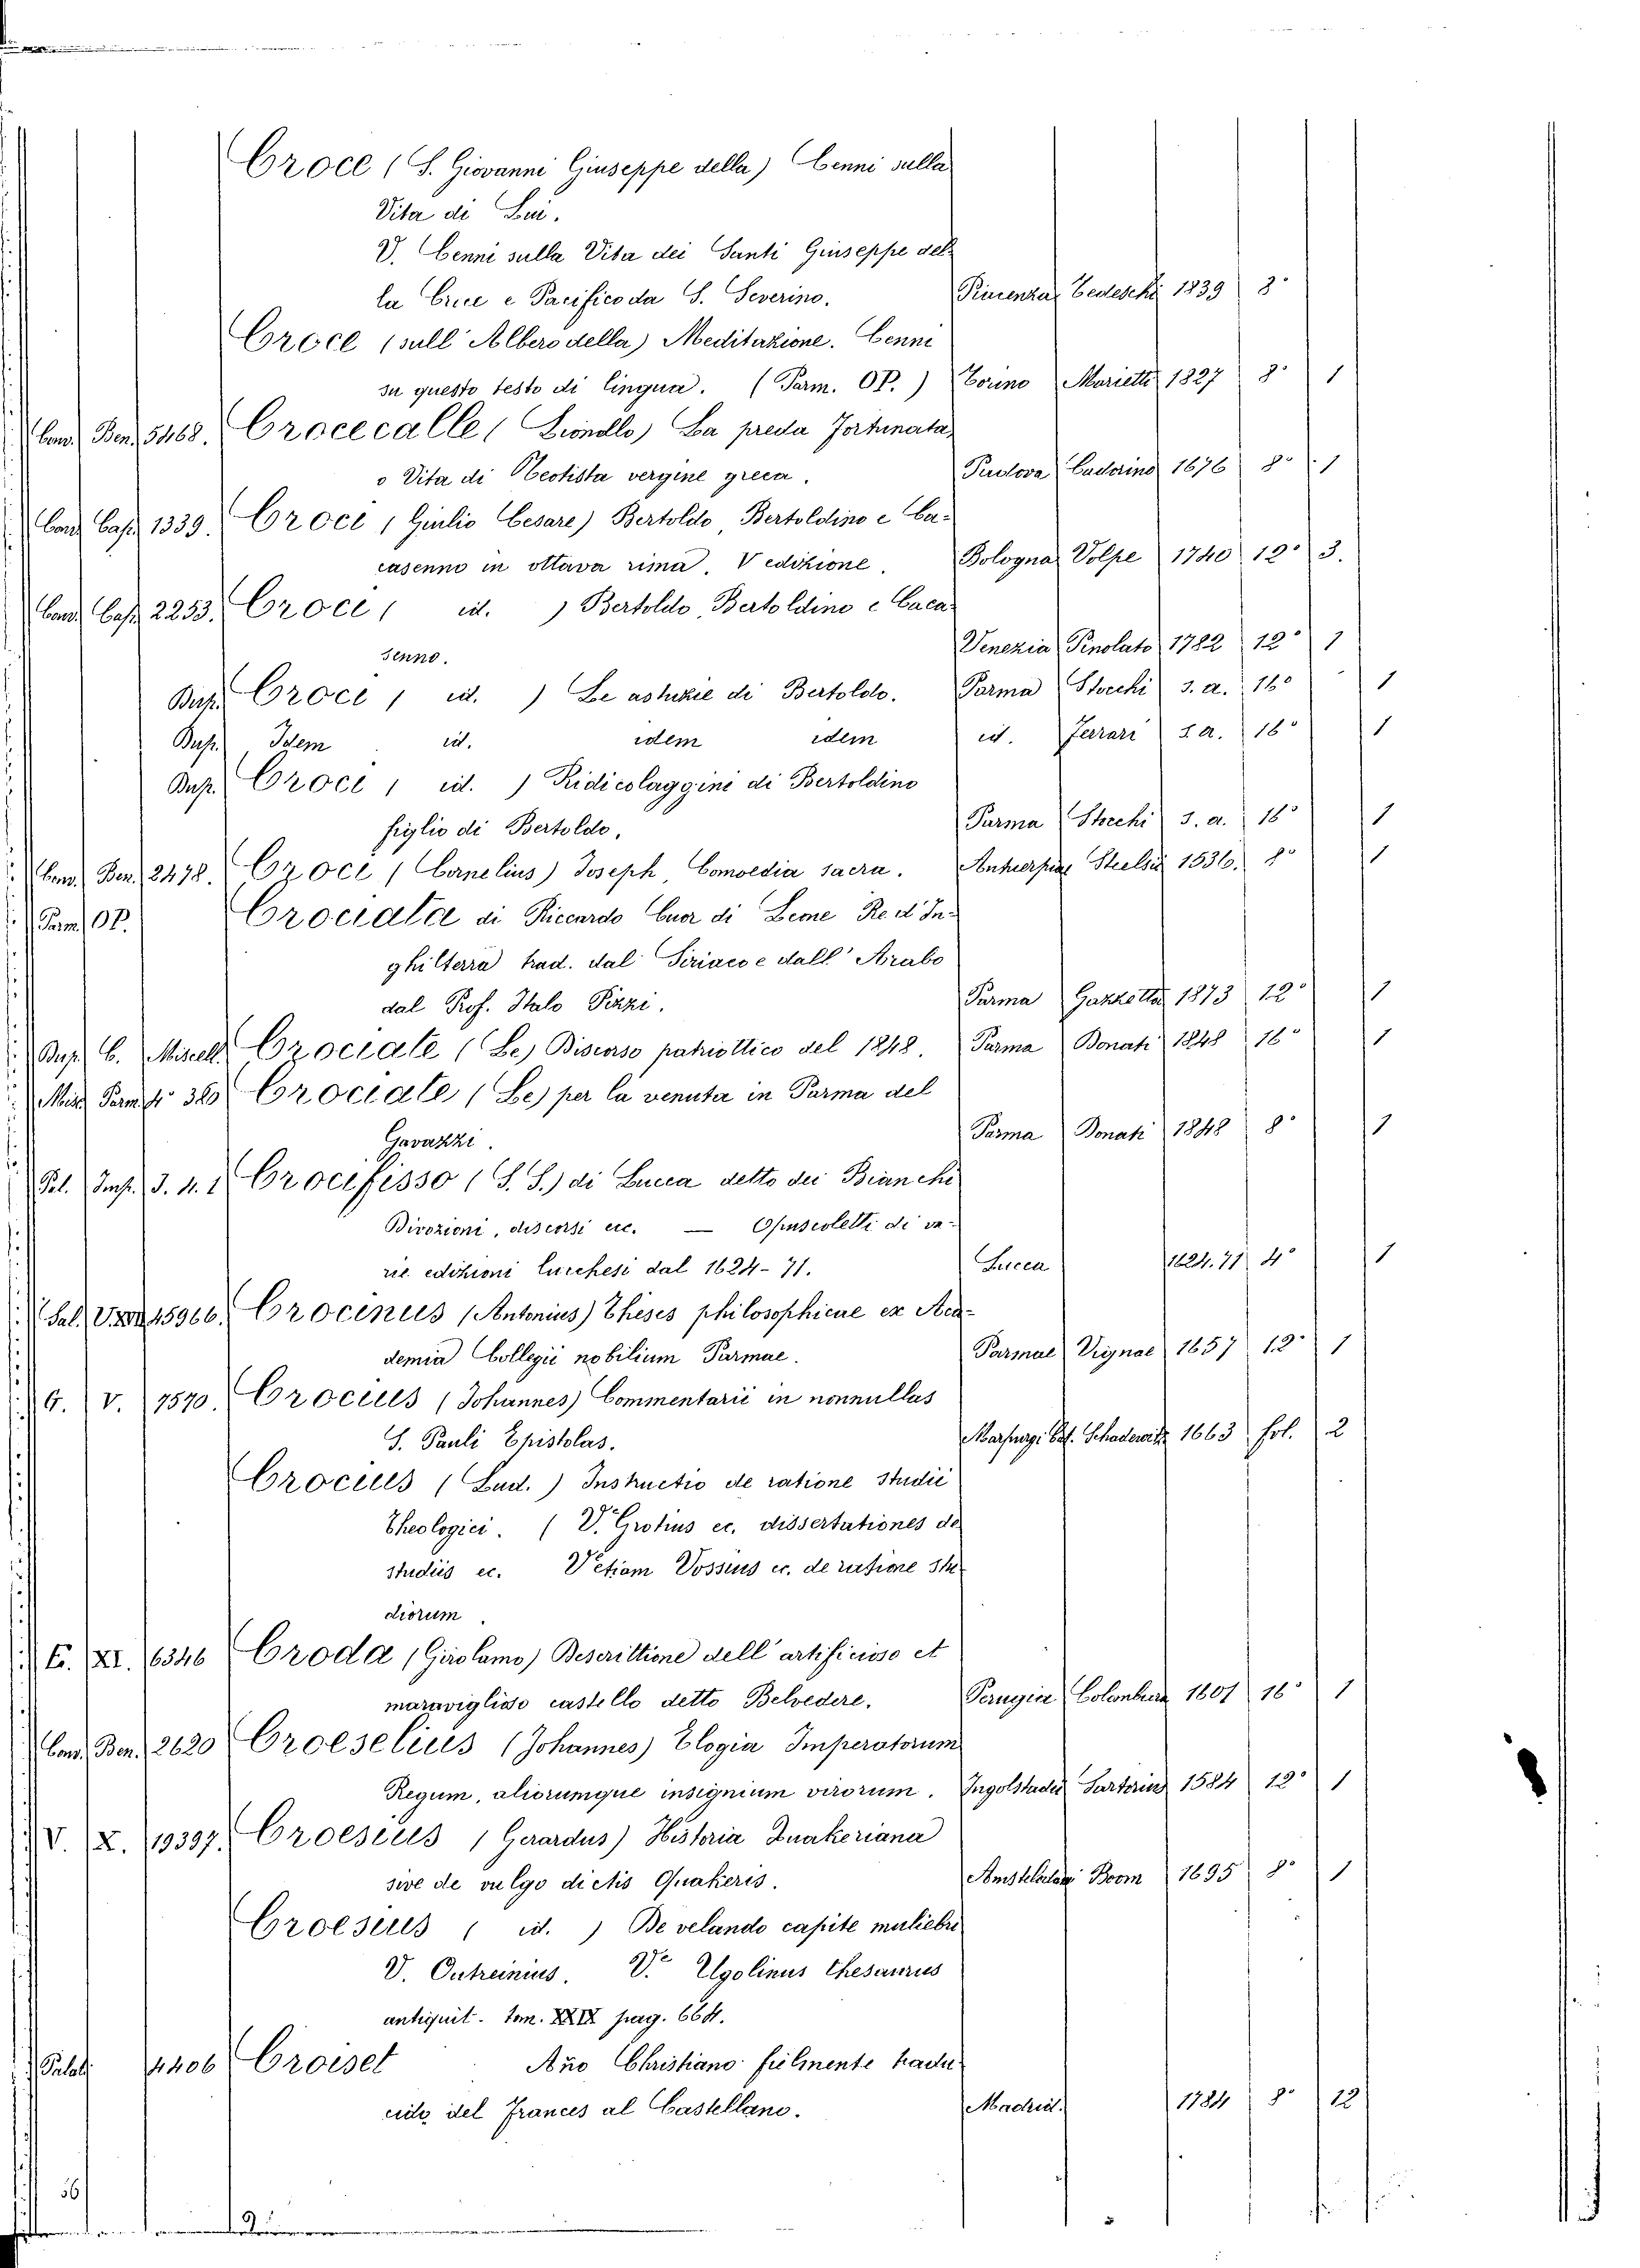 Croce (S. Giovanni Giuseppe della) Cenni sulla
Vita di Lui.
V. Cenni sulla Vita dei Santi Giuseppe del-
la Croce e Pacifico da S. Severino. Piacenza Tedeschi 1839 8°
Croce (sull' Albero della) Meditazione. Cenni
su questo testo di lingua. (Parm. OP.) Torino Marietti 1827 8° 1
Cons. Ben. 5468. Crocecalle (Lionello) La preda fortunata
o Vita di Neotista vergine greca. Padova Cadorino 1676 8° 1
Cons. Cass. 1339. Croce (Giulio Cesare) Bertoldo, Bertoldino e Ca-
casenno in ottava rima. V edizione. Bologna Volpe 1740 12° 3.
Cons. Cass. 2253. Croce ( id. ) Bertoldo, Bertoldino e Caca-
senno. Venezia Pinolato 1782 12° 1
Bus. Croce ( id. ) Le astuzie di Bertoldo. Parma Stocchi s. a. 16° 1
Bus. Idem id. idem idem id. Ferrari s. a. 16° 1
Bus. Croce ( id. ) Ridicolaggini di Bertoldino
figlio di Bertoldo. Parma Stocchi s. a. 16° 1
Cons. Ben. 2478. Croce (Cornelius) Joseph, Comoedia sacra. Antuerpiae Steelsii 1536. 8° 1
Parm. OP. Crociata di Riccardo Cuor di Leone Re d'In-
ghilterra trad. dal Siriaco e dall' Arabo
dal Prof. Italo Pizzi. Parma Gazzetta 1873 12° 1
Bus. C. Miscell. Crociate (Le) Discorso patriottico del 1848. Parma Donati 1848 16° 1
Misc. Parm. 4° 360 Crociate (Le) per la venuta in Parma del
Gavazzi. Parma Donati 1848 8° 1
Pal. Imp. 3. 4. 1 Crocifisso (S. S.) di Lucca detto dei Bianchi
Divozioni, discorsi ecc. — Opuscoletti di va-
rie edizioni lucchesi dal 1624-71. Lucca 1624.71 4° 1
Sal. V. 45966. Crocinus (Antonius) Theses philosophicae ex Aca-
demia Collegii nobilium Parmae. Parmae Vignae 1657 12° 1
G. V. 7570. Crocius (Johannes) Commentarii in nonnullas
S. Pauli Epistolas. Marpurgi Schadewitz 1663 fol. 2
Crocius (Lud.) Instructio de ratione studii
Theologici. (V. Grotius ec. dissertationes de
studiis ec. V etiam Vossius ec. de ratione stu-
diorum.
E. XI. 6346 Croda (Girolamo) Descrittione dell' artificioso et
maraviglioso castello detto Belvedere. Perugia Colombara 1601 16° 1
Cons. Ben. 2620 Croeselius (Johannes) Elogia Imperatorum
Regum, aliorumque insignium virorum. Ingolstadii Sartorius 1584 12° 1
V. X. 19397. Croesius (Gerardus) Historia Quakeriana
sive de vulgo dictis Quakeris. Amstelodami Boom 1695 8° 1
Croesius ( id. ) De velando capite muliebri
V. Outreinius. V.e Ugolinus Thesaurus
antiquit. tom. XXIX pag. 664.
Palat. 4406 Croiset Año Christiano fielmente tradu-
cido del Frances al Castellano. Madrid. 1784 8° 12
56